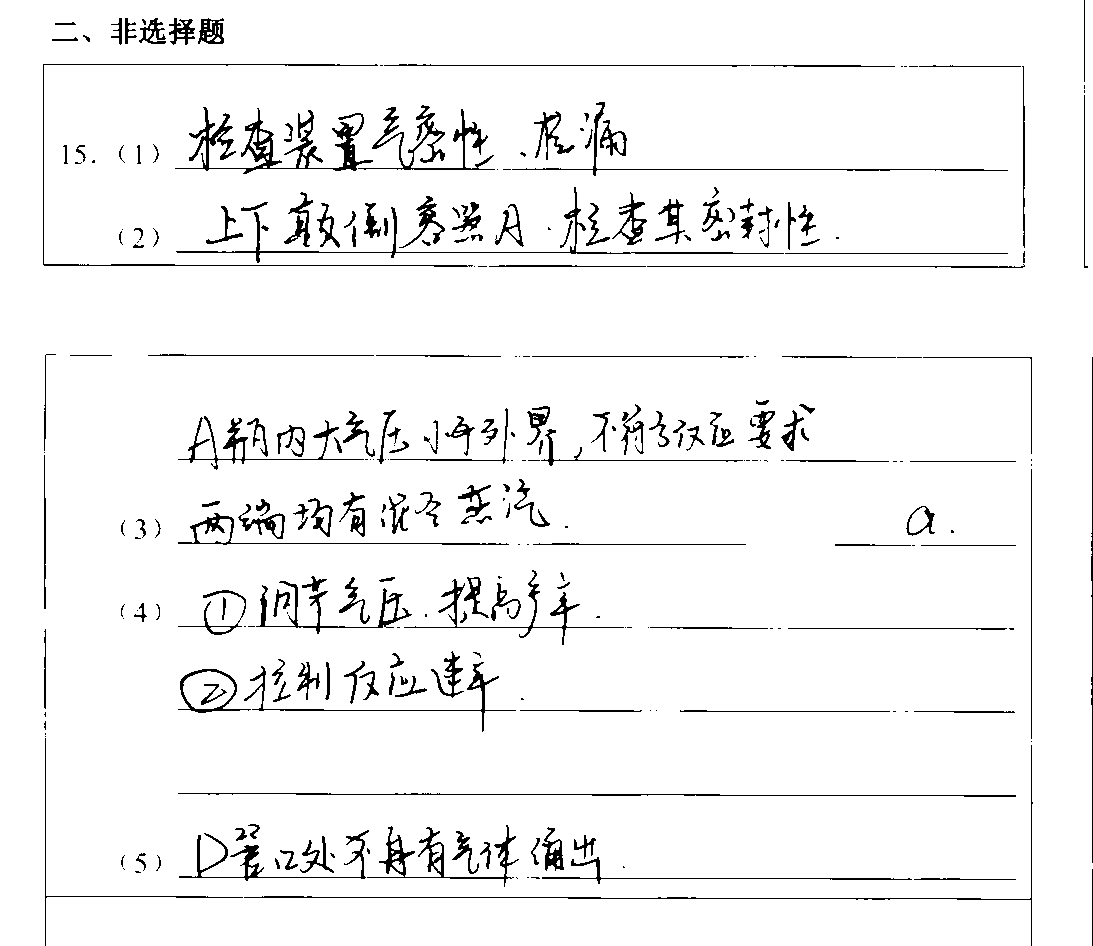 二、非选择题
15.（1）检查装置气密性、检漏
（2）上下颠倒容器A.检查其密封性.
A瓶内大气压小于外界,不符合反应要求
（3）两端均有混合蒸汽. a.
（4）①调节气压.提高产率.
②控制反应速率.
（5）D器口处不再有气体涌出.